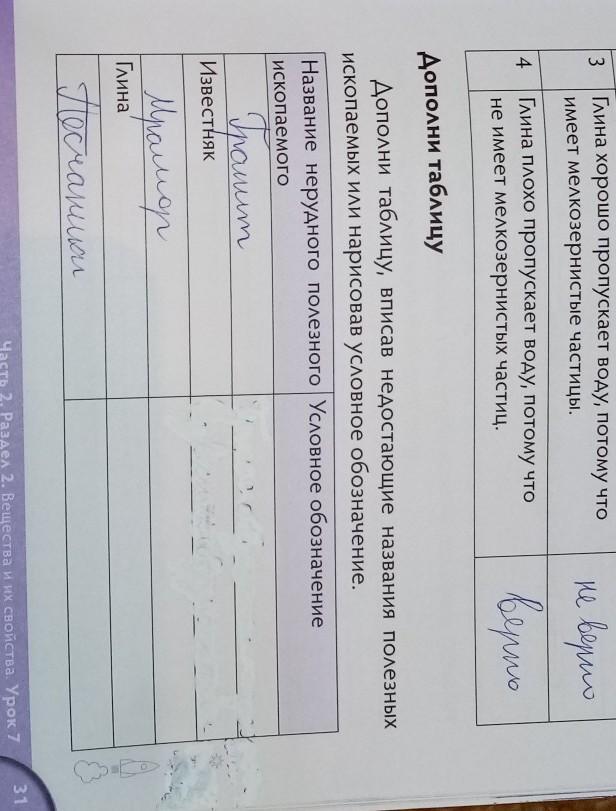 3 Глина хорошо пропускает воду, потому что
имеет мелкозернистые частицы.
не верно
4 Глина плохо пропускает воду, потому что
не имеет мелкозернистых частиц.
верно
Дополни таблицу
Дополни таблицу, вписав недостающие названия полезных
ископаемых или нарисовав условное обозначение.
Название нерудного полезного
ископаемого
Условное обозначение
Гранит
Известняк
Мрамор
Глина
Песчаники
Часть 2. Раздел 2. Вещества и их свойства. Урок 7
31